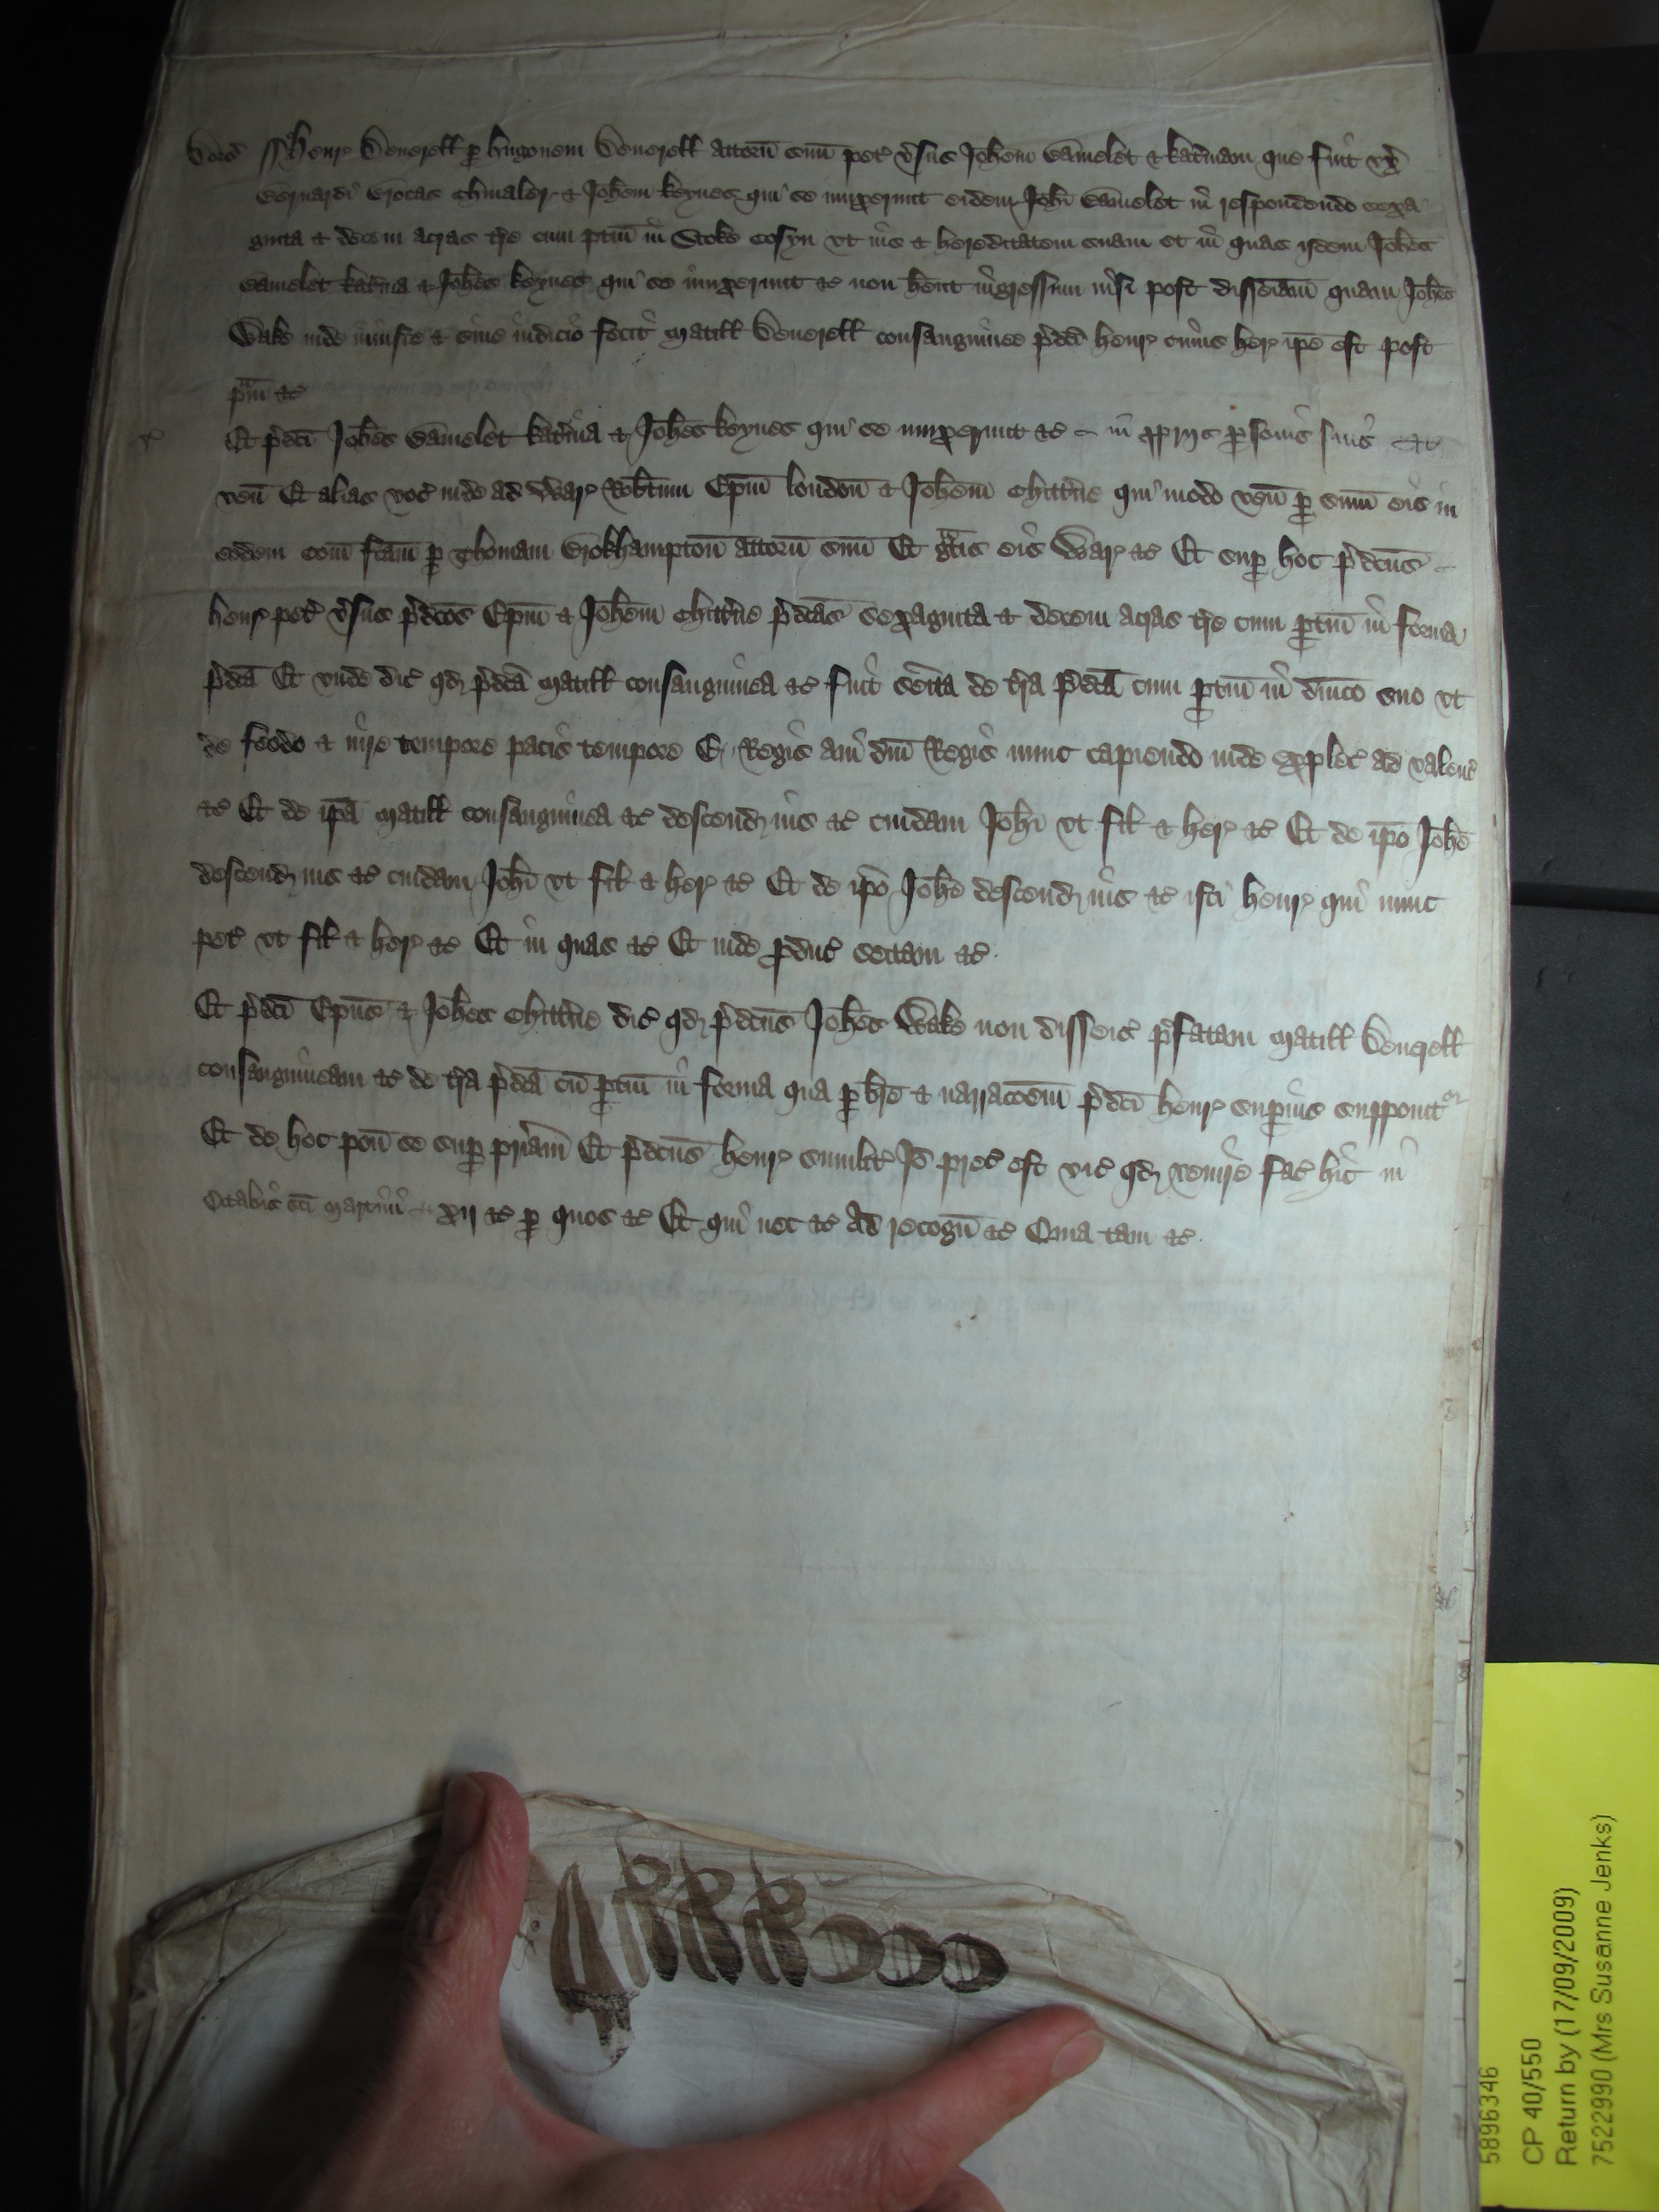 Dors' ss Henr' Deuerell p hugonem Deuerell attorn suu pet' v'sus Joh'em Gamelet & Kat'inam que fuit vx'
Bernardi Brocas Chiualer & Joh'em Keynes qui se iunxerunt eidem Joh'i Gamelet in respondendo sexa
ginta & decem acras t're cum ptin in Stoke Cosyn vt ius & hereditatem suam et in quas ijdem Joh'es
Gamelet Kat'ina & Joh'es Keynes qui se iunxerunt &c non h'ent ingressum nisi post disseis'am quam Joh'es
Wake inde iniuste & sine iudicio fecit Matill Deuerell consanguinee p'd'ci Henr' cuius her' ip'e est post
p'm &c
Et p'd'ci Joh'es Gamelet Kat'ina & Joh'es Keynes qui se iunxerunt &c in propriis p'sonis suis
ven' Et alias voc' inde ad War' Rob'tum Ep'm London & Joh'em Chitt'ne qui modo ven' p sum' eis in
eodem com' f'cam p Thomam Brokhampton attorn suu Et gratis eis War' &c Et sup hoc p'd'cus
Henr' pet' v'sus p'd'cos Ep'm & Joh'em Chitt'ne p'd'cas sexaginta & decem acras t're cum ptin in forma
p'd'ca Et vnde dic' qd p'd'ca Matill consanguinea &c fuit seis'ita de t'ra p'd'ca cum ptin in d'nico suo vt
de feodo & iure tempore pacis tempore E Regis aui d'ni Regis nunc capiendo inde explec' ad valenc'
&c Et de ip'a Matill consanguinea &c descend' ius &c cuidam Joh'i vt fil & her' &c Et de ip'o Joh'e
descend' ius &c cuidam Joh'i vt fil & her' &c Et de ip'o Joh'e descend' ius &c isti Henr' qui nunc
pet' vt fil & her' &c Et in quas &c Et inde p'duc' sectam &c
Et p'd'ci Ep'us & Joh'es Chitt'ne dic' qd p'd'cus Joh'es Wake non disseis' p'fatam Matill Deuerell
consanguineam &c de t'ra p'd'ca cu ptin in forma qua p br'e & narrac'o'em p'd'ci Henr' sup'ius supponit'ur
Et de hoc pon' se sup pr'iam Et p'd'cus Henr' simil't' Jo' prec' est vic' qd venire fac' hic in
Octabis s'ci Martini xij &c p quos &c Et qui nec &c Ad recogn &c Quia tam &c
5896346
CP 40/550
Return by (17/09/2009)
7522990 (Mrs Susanne Jenks)